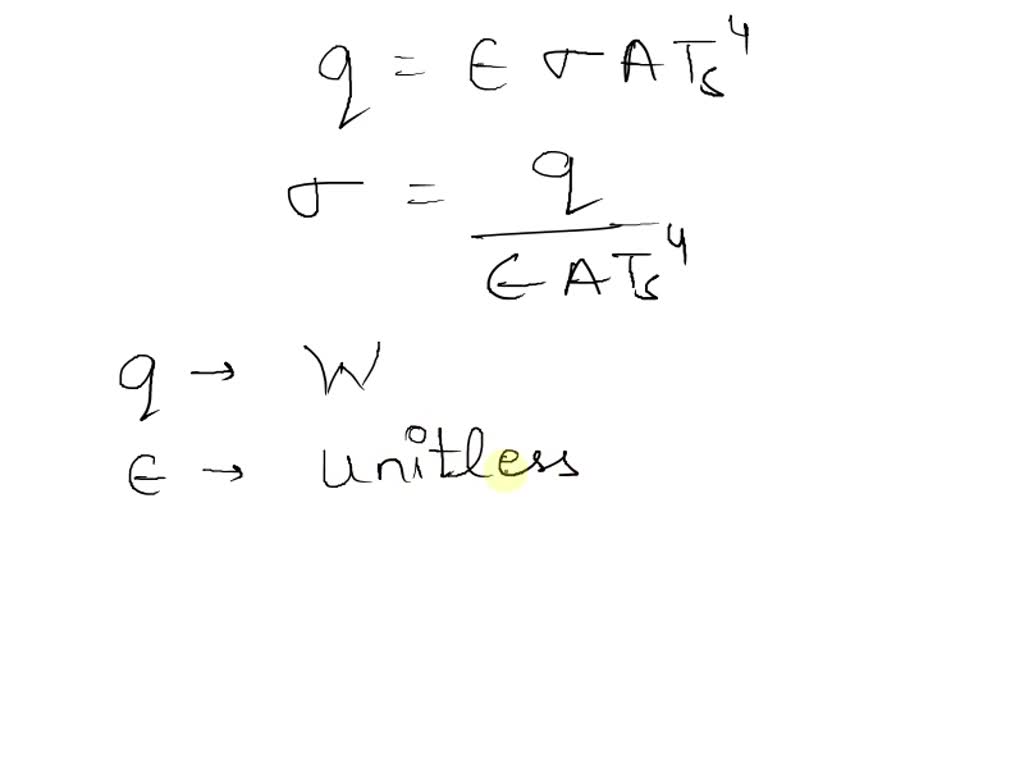 q = ϵ σ A Ts⁴
σ = q / ϵ A Ts⁴
q → W
ϵ → unitless